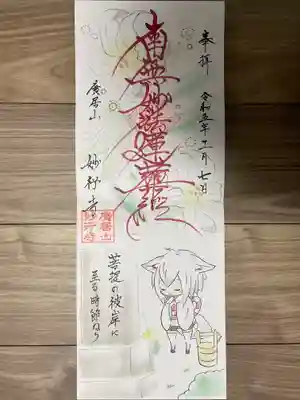 奉拝
令和五年十一月七日
南無妙法蓮華経
廣居山
妙行寺
菩提の彼岸に
至る時節なり